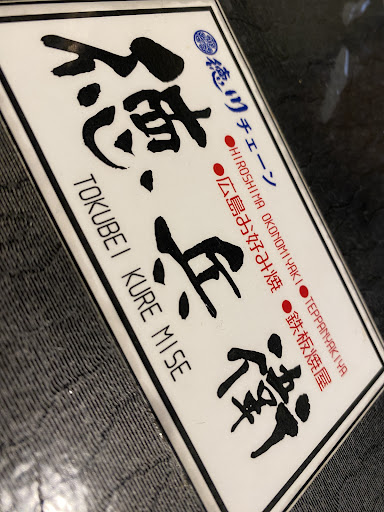 徳川チェーン
●HIROSHIMA OKONOMIYAKI ●TEPPANYAKIYA
●広島お好み焼 ●鉄板焼屋
徳兵衛
TOKUBEI KURE MISE